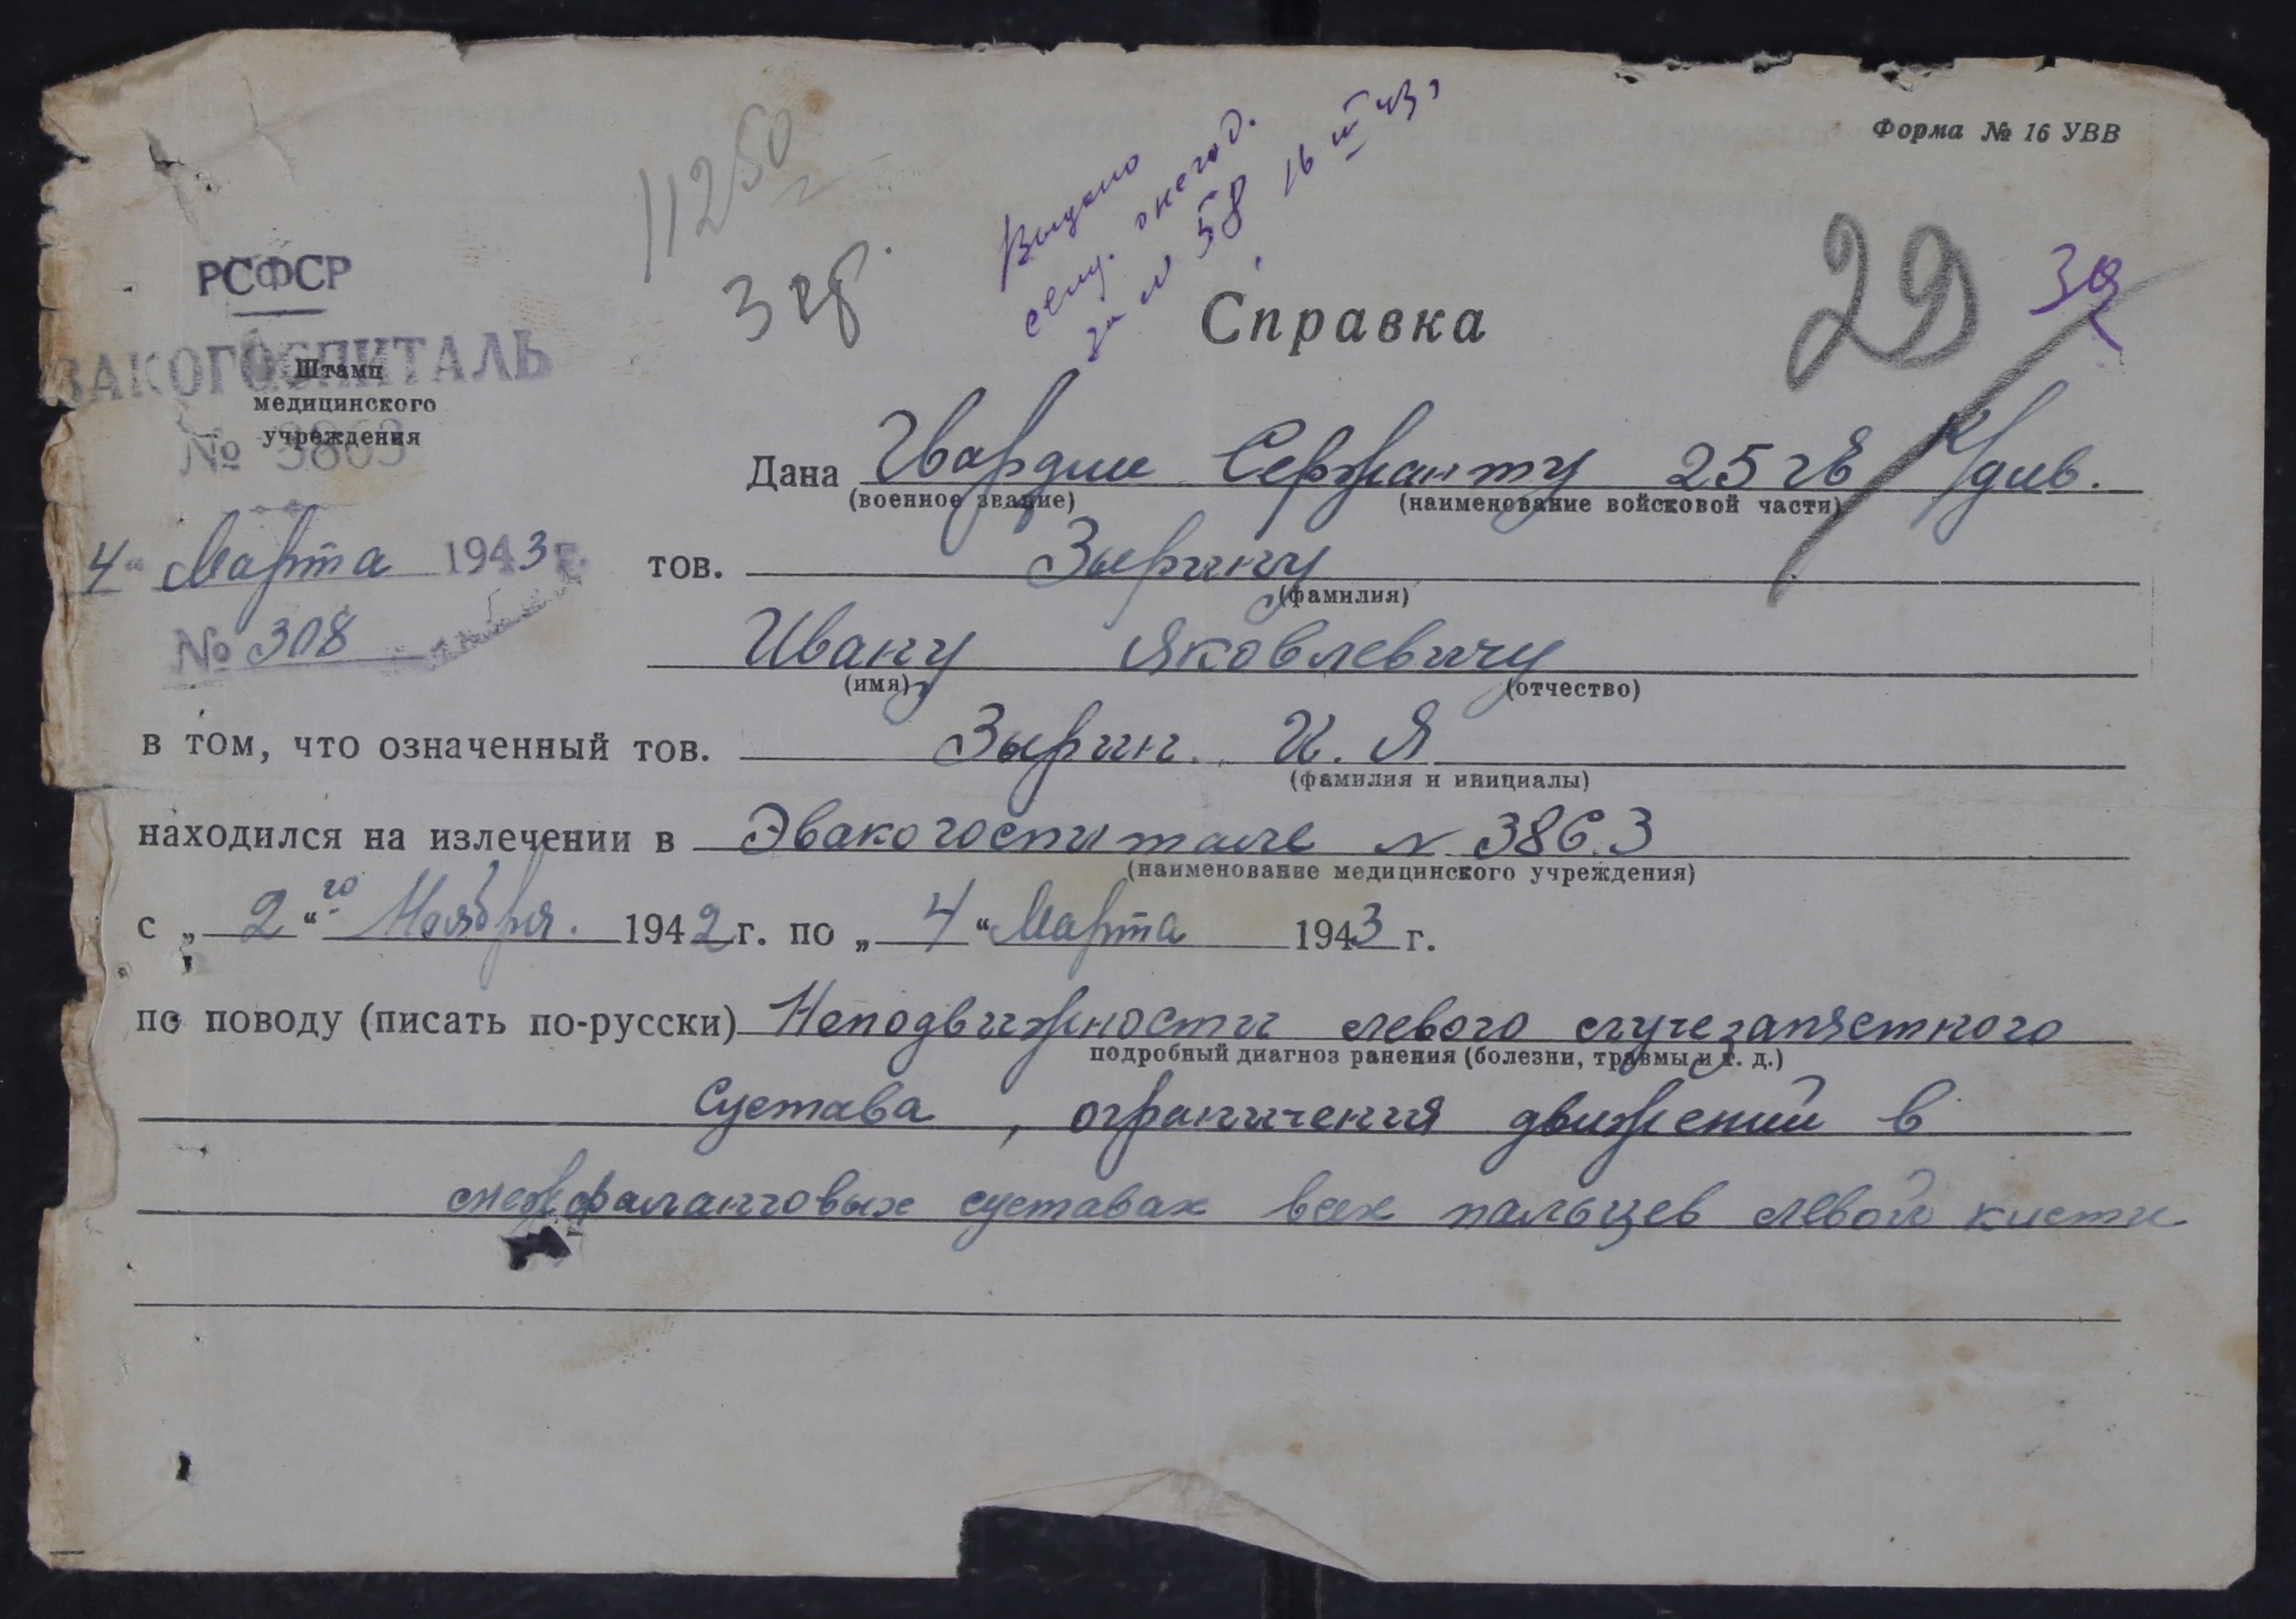 Форма № 16 УВВ
11250
3 гр.
Выдано
за № 58 16 III 43 г
29
РСФСР
ВАКОГОСПИТАЛЬ
Штамп
медицинского
учреждения
№ 3863
4 " Марта 1943 г.
№ 308
Справка
Дана Гвардии Сержанту 25 гв К/див.
(военное звание) (наименование войсковой части)
тов. Зырину
(фамилия)
Ивану Яковлевичу
(имя) (отчество)
в том, что означенный тов. Зырин. И. Я
(фамилия и инициалы)
находился на излечении в Эвакогоспитале N 3863
(наименование медицинского учреждения)
с „ 2 “ го Ноября. 1942 г. по „ 4 “ Марта 1943 г.
по поводу (писать по-русски) Неподвижности левого лучезапястного
подробный диагноз ранения (болезни, травмы и т. д.)
сустава, ограничения движений в
межфаланговых суставах всех пальцев левой кисти